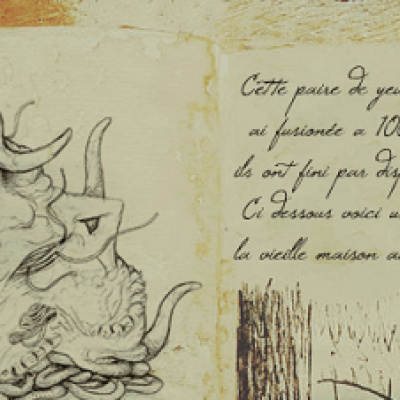 Cette paire de yeu
ai fusionée a 100
ils ont fini par disp
Ci dessous voici u
la vieille maison a